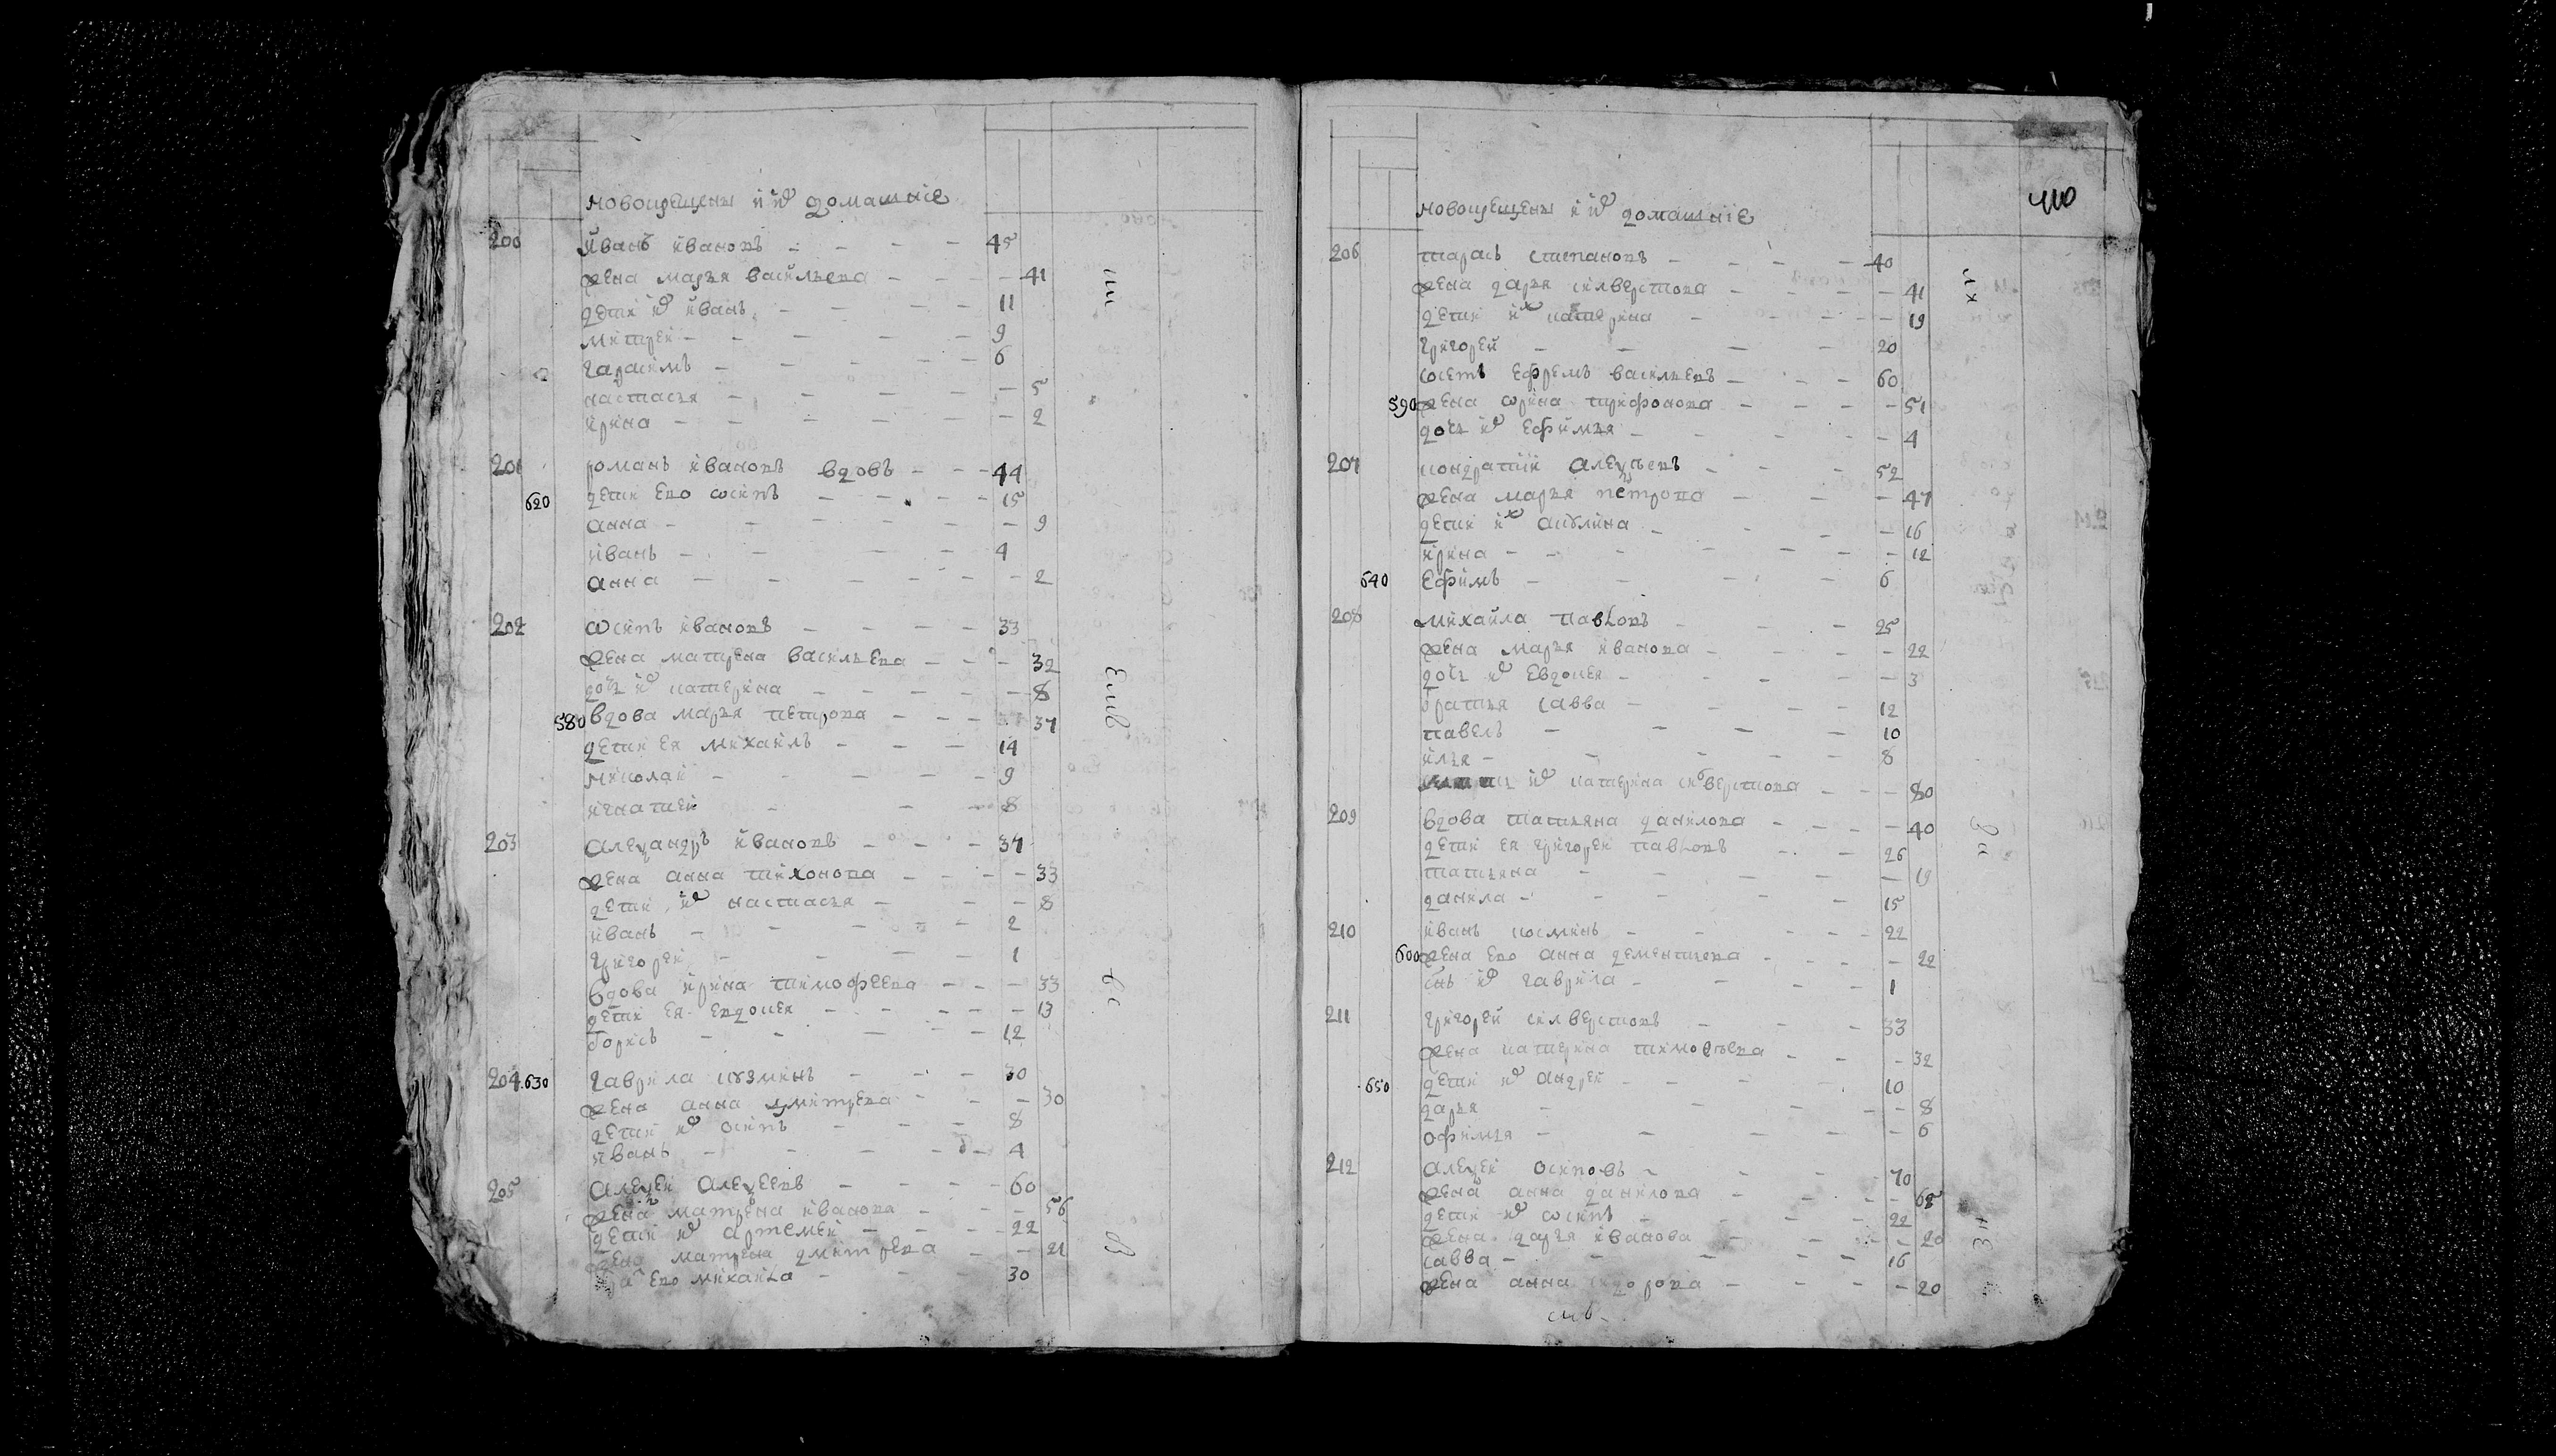 новокрещены и их домашние
200 Иванъ ивановъ - - - - 45
жена марья васильева - - - - 41
дети их иванъ - - - - 11
митреи - - - - - 9
гарасимъ - - - - 6
настасья - - - - - 5
ирина - - - - - - 2
201 романъ ивановъ вдовъ - - - 44
620 дети ево осипъ - - - - 15
анна - - - - - - 9
иванъ - - - - 4
анна - - - - - - 2
202 осипъ ивановъ - - - - 33
жена матрена васильева - - - 32
дочь их катерина - - - - - 8
580 вдова марья петрова - - - 37
дети ея михаилъ - - - 14
николаи - - - - - 9
игнатеи - - - 8
203 Алеѯандръ ивановъ - - - - 37
жена анна тихонова - - - - 33
дети их настасья - - - 8
иванъ - - - - - 2
григореи - - - - 1
вдова ирина тимофеева - - - 33
дети ея евдокея - - - - - 13
борисъ - - - - - 12
204 630 гаврила кузминъ - - - 30
жена анна дмитрева - - - 30
дети их осипъ - - - 8
иванъ - - - - - 4
205 Алеѯеи Алеѯеевъ - - - - 60
жена матрена иванова - - - 56
дети их артемеи - - - - 22
жена матрена дмитрева - - 21
ево михаила - - - 30
еши
вс
410
новокрещены и их домашние
206 тарасъ степановъ - - - - 40
жена дарья силверстова - - - - 41
дети их катерина - - - - - 19
григореи - - - - 20
ефремъ васильевъ - - - 60
590 жена орина трифонова - - - - 51
дочь их ефимья - - - - - 4
207 кондратии алеѯеевъ - - - 52
жена марья петрова - - - - 47
дети их акулина - - - - 16
ирина - - - - - - 12
640 Ефимъ - - - - 6
208 михаила павловъ - - - 25
жена марья иванова - - - - 22
дочь их евдокея - - - - - 3
братья савва - - - - 12
павелъ - - - - 10
илья - - - - - 8
их катерина силверстова - - - 80
209 вдова татьяна данилова - - - - 40
дети ея григореи павловъ - - 26
татьяна - - - - - 19
данила - - - - - 15
210 иванъ косминъ - - - - 22
600 жена ево анна дементиева - - - - 22
снъ их гаврила - - - - 1
211 григореи силверстовъ - - - 33
жена катерина тимофеева - - - 32
650 дети их андреи - - - 10
дарья - - - - - 8
офимья - - - - - 6
212 алеѯеи осиповъ - - - 70
жена анна данилова - - - - 68
дети их осипъ - - - - 22
жена дарья иванова - - - - 20
савва - - - - - 16
жена анна сидорова - - - - 20